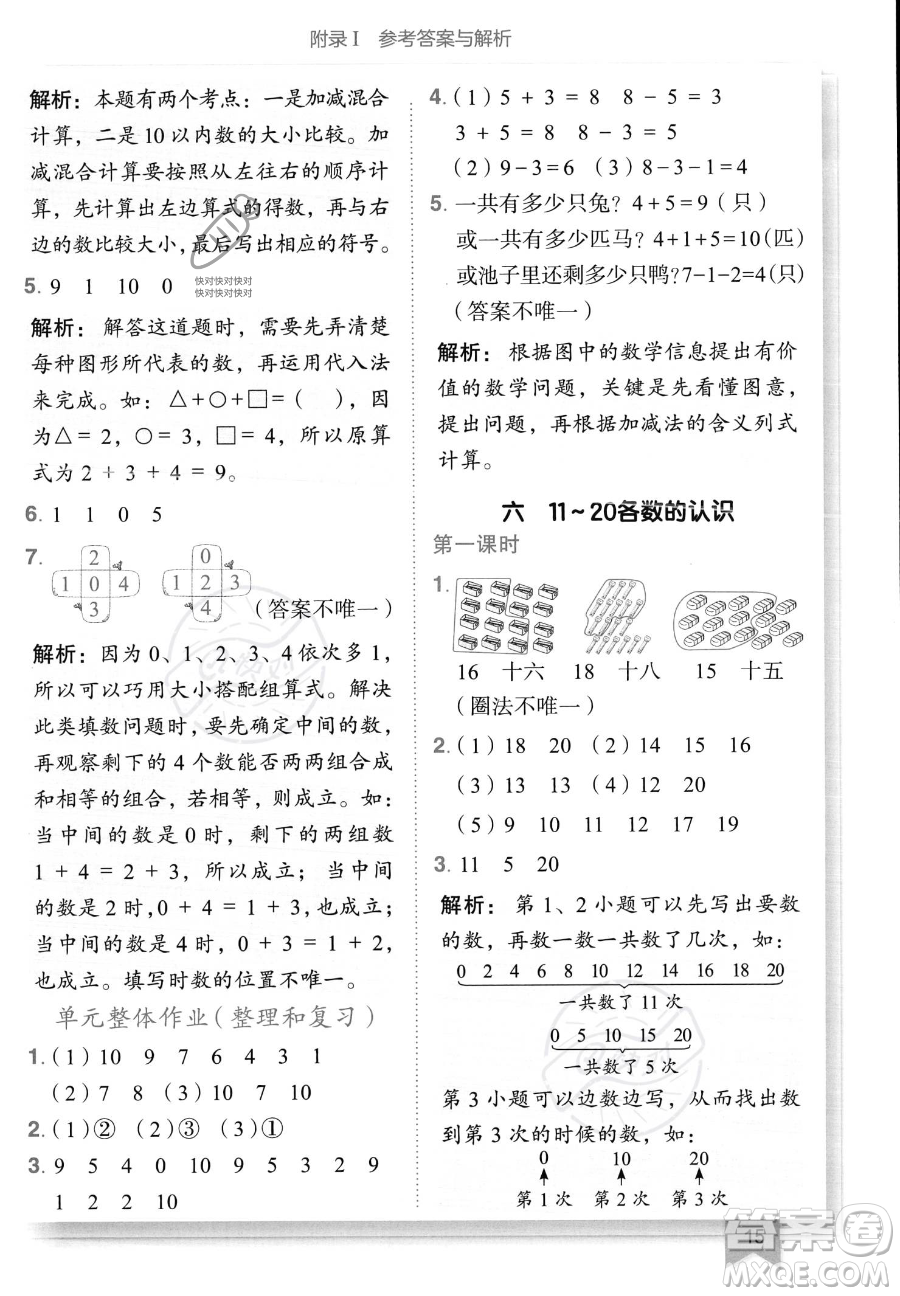 附录Ⅰ 参考答案与解析
解析：本题有两个考点：一是加减混合
计算，二是10以内数的大小比较。加
减混合计算要按照从左往右的顺序计
算，先计算出左边算式的得数，再与右
边的数比较大小，最后写出相应的符号。
5. 9 1 10 0
快对快对快对
快对快对快对
解析：解答这道题时，需要先弄清楚
每种图形所代表的数，再运用代入法
来完成。如：△+○+□=( )，因
为△=2，○=3，□=4，所以原算
式为2+3+4=9。
6. 1 1 0 5
7.
2
1 0 4
3
0
1 2 3
4
（答案不唯一）
解析：因为0、1、2、3、4依次多1，
所以可以巧用大小搭配组算式。解决
此类填数问题时，要先确定中间的数，
再观察剩下的4个数能否两两组合成
和相等的组合，若相等，则成立。如：
当中间的数是0时，剩下的两组数
1+4=2+3，所以成立；当中间
的数是2时，0+4=1+3，也成立；
当中间的数是4时，0+3=1+2，
也成立。填写时数的位置不唯一。
单元整体作业（整理和复习）
1.（1）10 9 7 6 4 3 1
（2）7 8（3）10 9 7 10 8
2.（1）②（2）③（3）①
3. 9 5 4 0 10 9 5 3 2 9
1 2 2 10
4.（1）5+3=8 8-5=3
3+5=8 8-3=5
（2）9-3=6（3）8-3-1=4
5. 一共有多少只兔？4+5=9（只）
或一共有多少匹马？4+1+5=10（匹）
或池子里还剩多少只鸭？7-1-2=4（只）
（答案不唯一）
解析：根据图中的数学信息提出有价
值的数学问题，关键是先看懂图意，
提出问题，再根据加减法的含义列式
计算。
六 11～20各数的认识
第一课时
1.
16 十六 18 十八 15 十五
（圈法不唯一）
2.（1）18 20（2）14 15 16
（3）13 13（4）10 12 20
（5）9 10 11 17 19
3. 11 5 20
解析：第1、2小题可以先写出要数
的数，再数一数一共数了几次，如：
0 2 4 6 8 10 12 14 16 18 20
一共数了11次
0 5 10 15 20
一共数了5次
第3小题可以边数边写，从而找出数
到第3次的时候的数，如：
0 10 20
第1次 第2次 第3次
15
答案卷
MXQE.COM